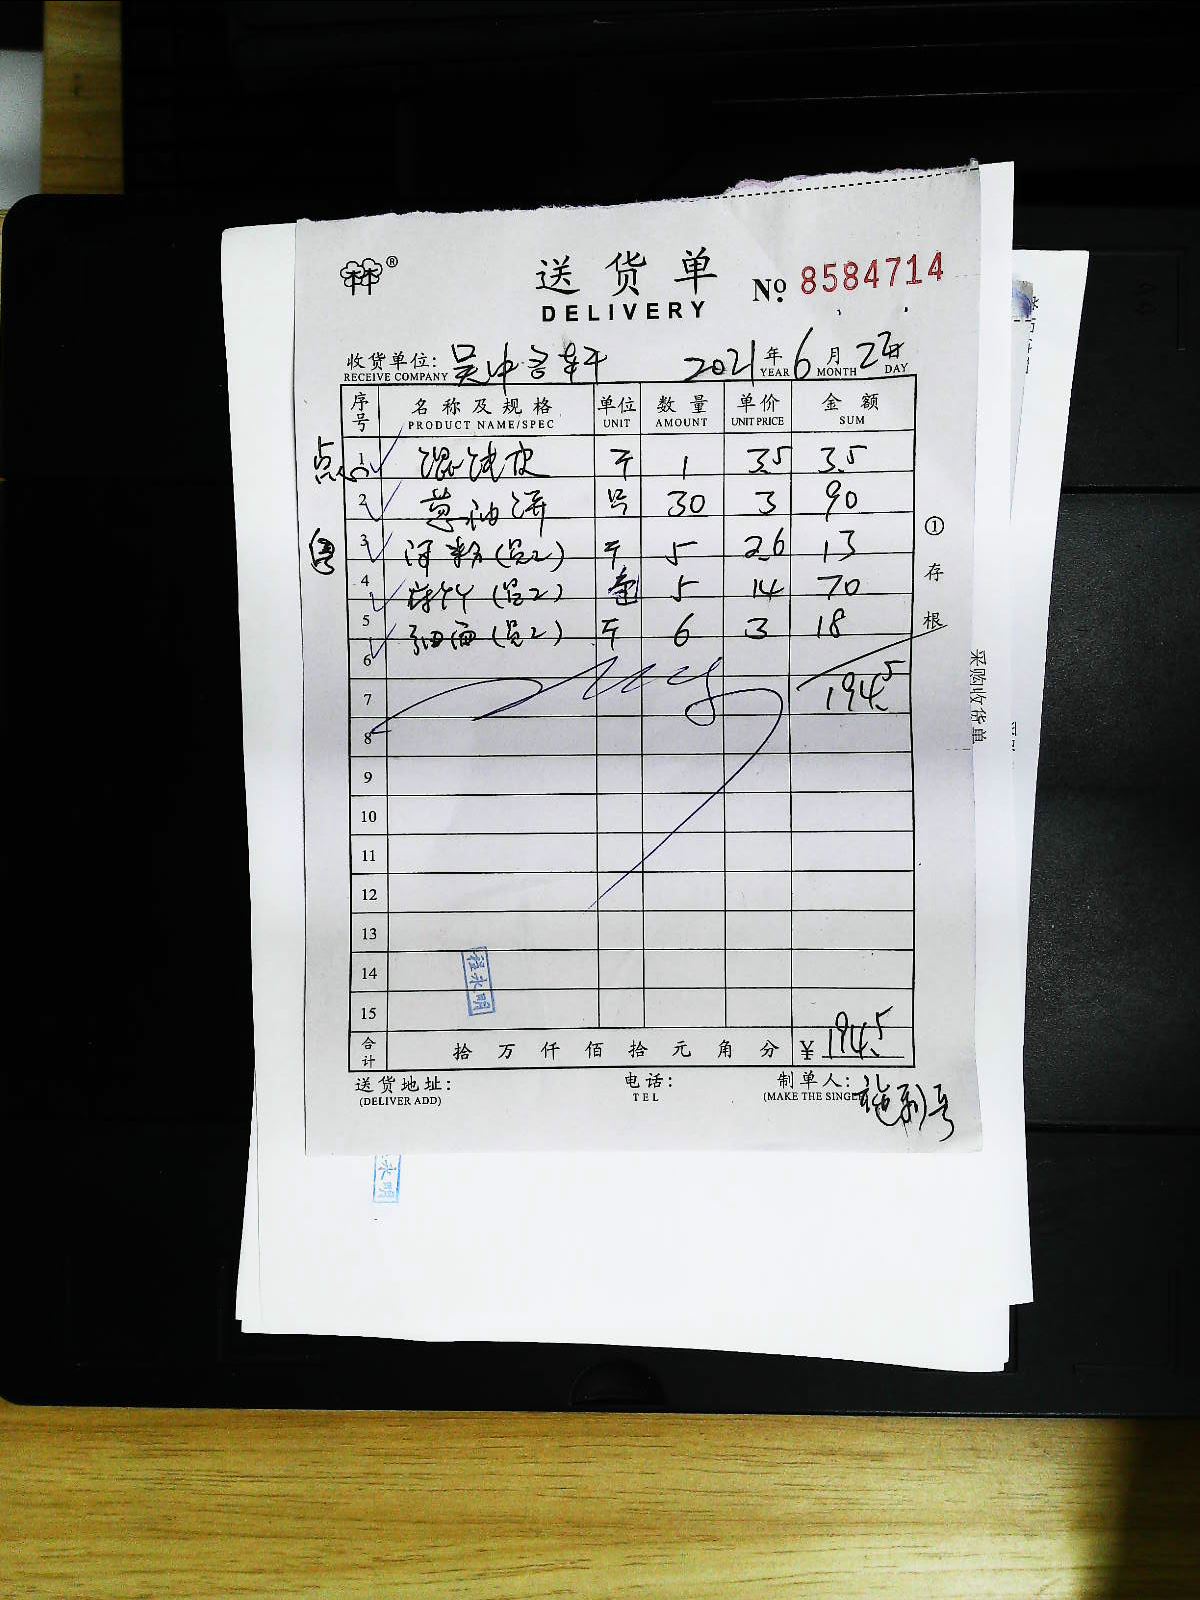 林®
送货单
DELIVERY
№ 8584714
收货单位: 吴中 轩 2021年6月2日
RECEIVE COMPANY YEAR MONTH DAY
序号 名称及规格 单位 数量 单价 金额
PRODUCT NAME/SPEC UNIT AMOUNT UNIT PRICE SUM
点心 1 混沌皮 斤 1 3.5 3.5
2 葱油饼 30 3 90
粤 3 河粉(员工) 斤 5 2.6 13
4 (员工) 5 14 70
5 细面(员工) 斤 6 3 18
6
7 194.5
8
9
10
11
12
13
14
15
合计 拾 万 仟 佰 拾 元 角 分 ¥ 194.5
①存根
程永明
送货地址: 电话: 制单人: 施
(DELIVER ADD) TEL (MAKE THE SINGLE
采购收货单
永明